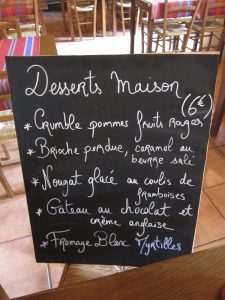 Desserts Maison
(6€)
* Crumble pommes fruits rouges
* Brioche perdue, caramel au
beurre salé
* Nougat glacé au coulis de
framboises
* Gâteau au chocolat et
crème anglaise
* Fromage Blanc Myrtilles